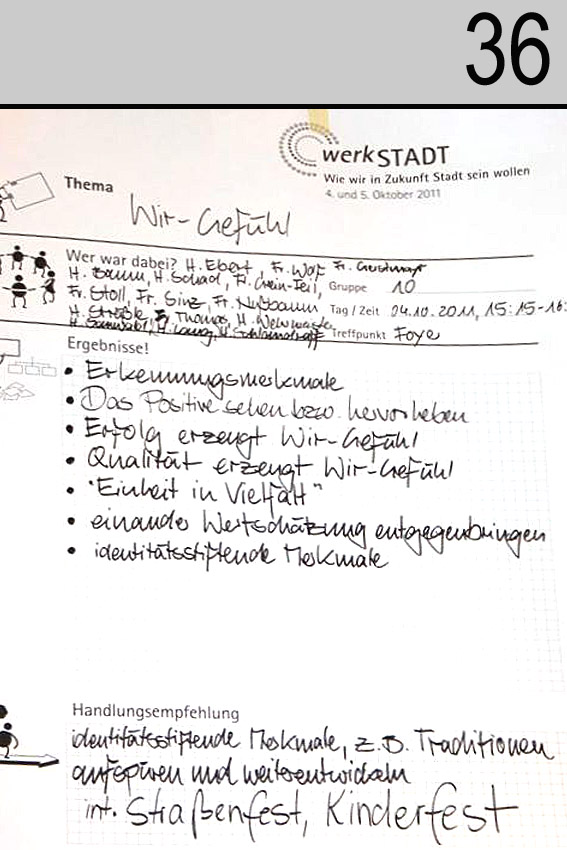 36
werkSTADT
Wie wir in Zukunft Stadt sein wollen
4. und 5. Oktober 2011
Thema
Wir-Gefühl
Wer war dabei? H. Ebert, Fr. Wolf Fr.
H. Baum, H. Schad, Fr. Gruppe 10
Fr. Stoll, Fr. Sinz, Fr. Nußbaum Tag / Zeit 04.10.2011, 15:15-16:
H. Thomas, H.
H. Treffpunkt Foye
Ergebnisse!
• Erkennungsmerkmale
• Das Positive sehen bzw. hervorheben
• Erfolg erzeugt Wir-Gefühl
• Qualität erzeugt Wir-Gefühl
• "Einheit in Vielfalt"
• einander Wertschätzung entgegenbringen
• identitätsstiftende Merkmale
Handlungsempfehlung
identitätsstiftende Merkmale, z.B. Traditionen
aufspüren und weiterentwickeln
int. Straßenfest, Kinderfest